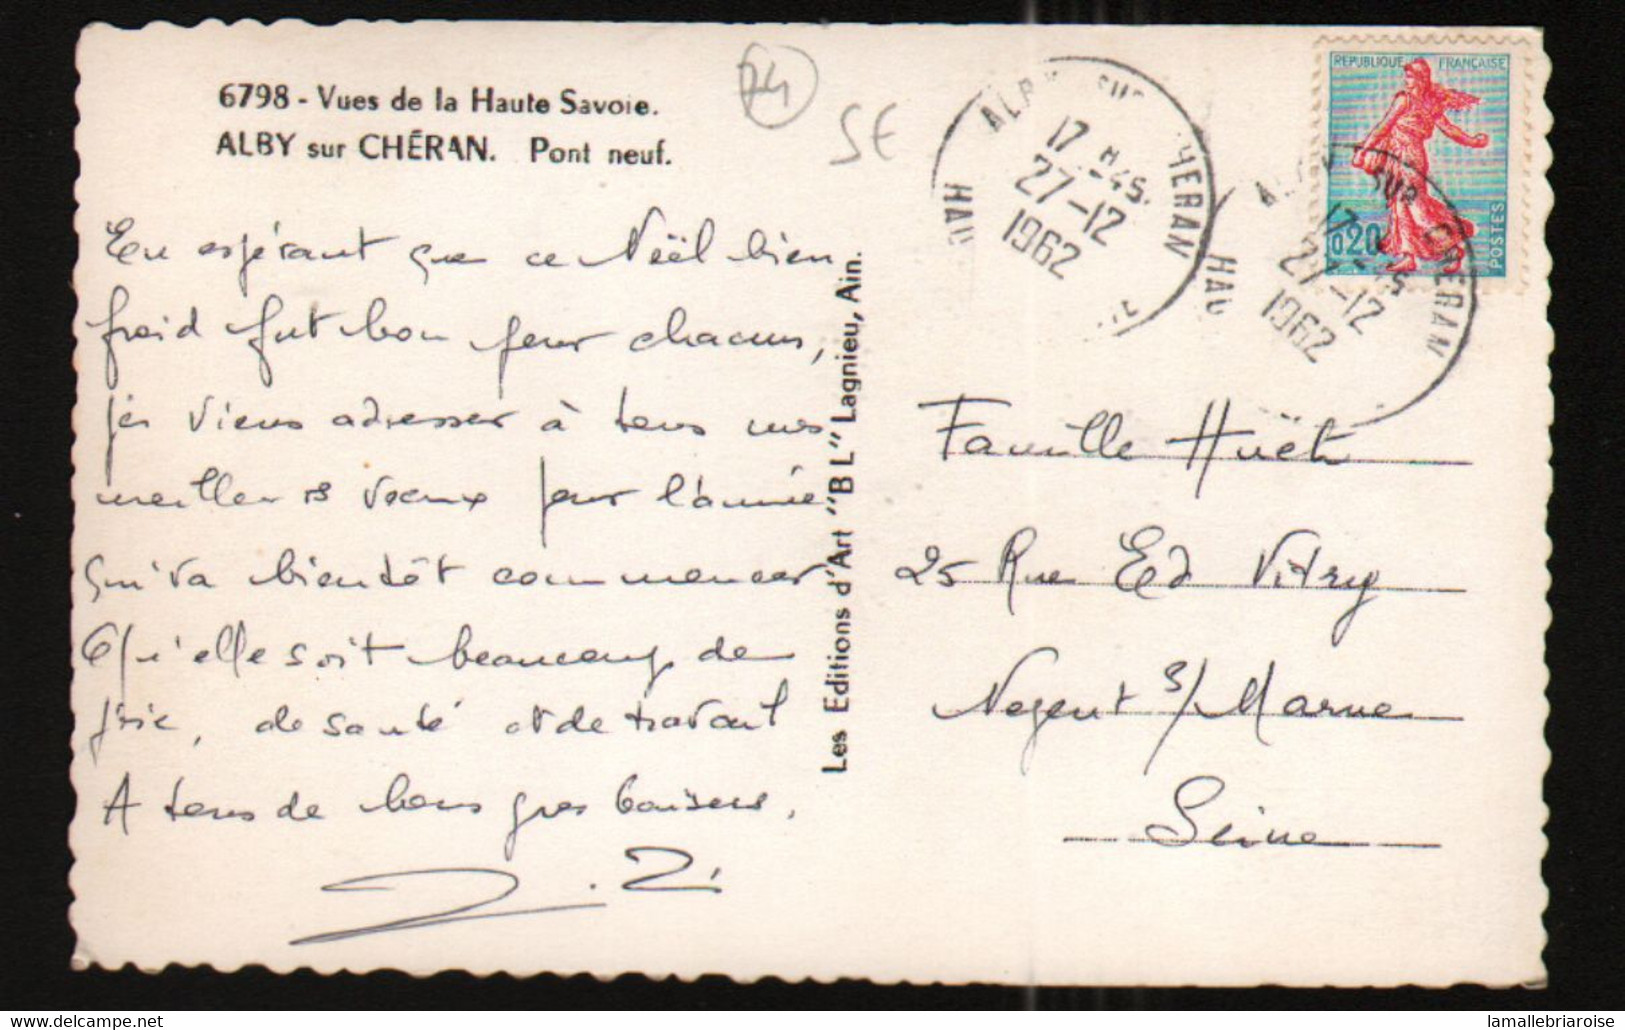 6798 - Vues de la Haute Savoie.
ALBY sur CHÉRAN. Pont neuf.
74
SE
En espérant que ce Noël bien
froid fut bon pour chacun,
je viens adresser à tous mes
meilleurs voeux pour l'année
qui va bientôt commencer
Qu'elle soit beaucoup de
joie, de santé et de travail
A tous de bons gros baisers.
Les Editions d'Art "BL" Lagnieu, Ain.
ALBY SUR CHERAN
17 H45
27-12
1962
HAU
REPUBLIQUE FRANÇAISE
0,20
POSTES
SUR CHERAN
17
27-12
1962
HAU
Famille Huët
25 Rue Ed Vitry
Nogent s/ Marne
Seine
delcampe.net
lamallebriaroise